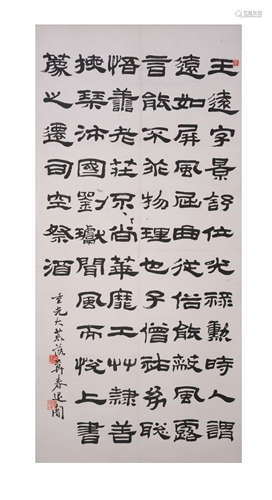 王遠字景舒位光祿勳時人謂
遠如屏風屈曲從俗能蔽風露
言能不乖物理也子僧祐幼聰
悟善老莊不尚華靡工艸隸善
挾琴沛國劉瓛聞風而悅上書
薦之遷司空祭酒
重光大荒落新春